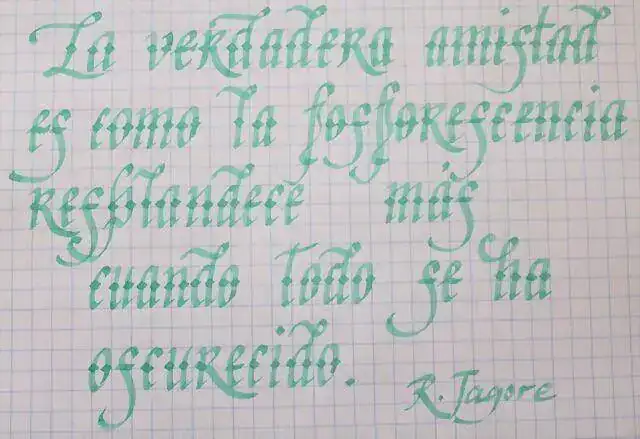 La verdadera amistad
es como la fosforescencia
resplandece más
cuando todo se ha
oscurecido.
R. Tagore